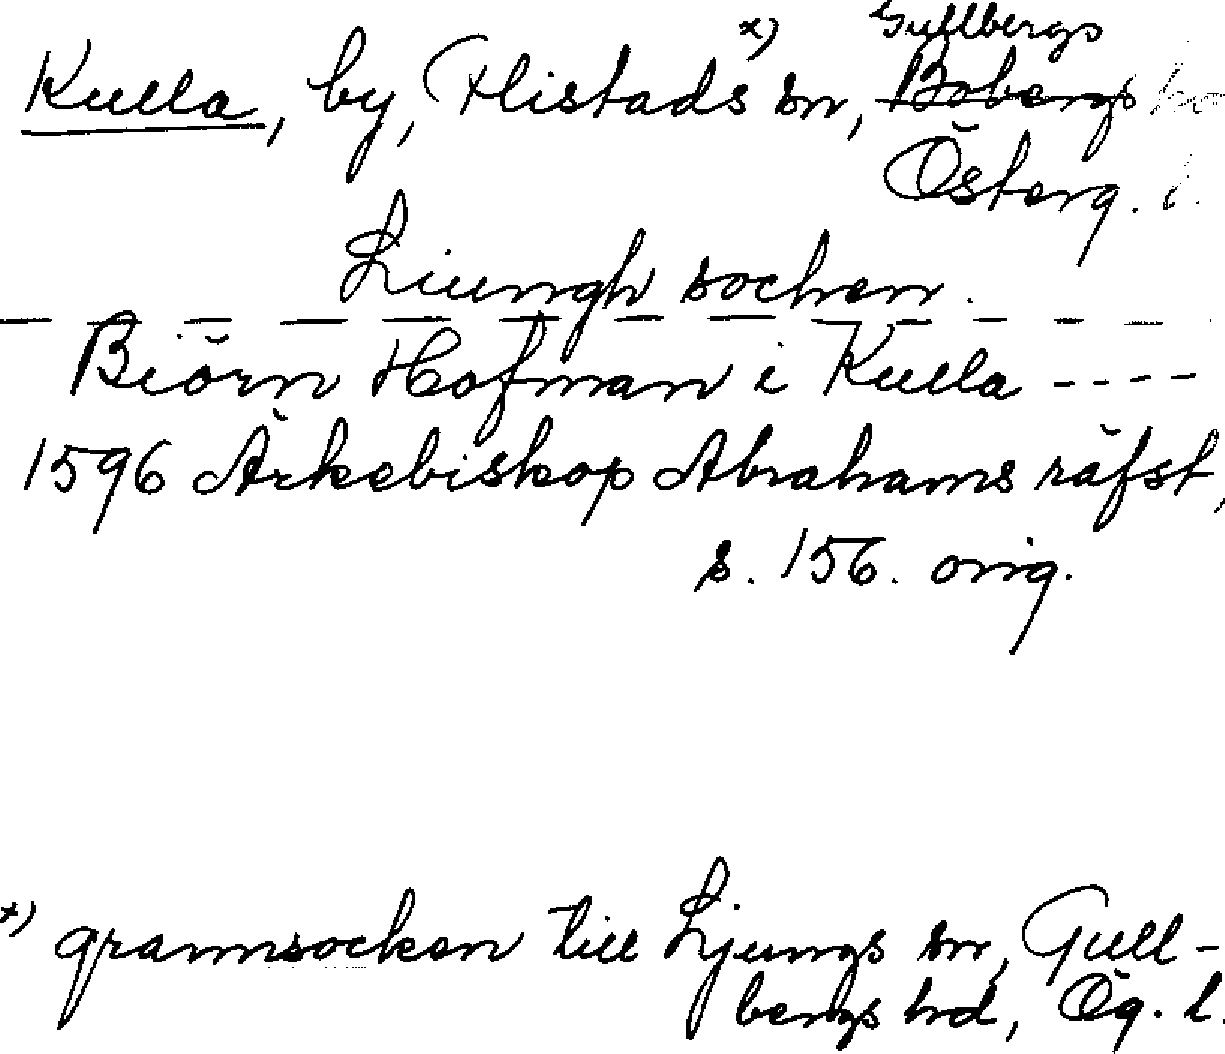 x) Gullbergs
Kulla, by, Flistads sn, Bobergs
Österg. l.
Liungh sochen.
— — — — — — — — — — — —
Biörn Hofman i Kulla ----
1596 Ärkebiskop Abrahams räfst,
s. 156. orig.
x) grannsocken till Ljungs sn, Gull-
bergs hrd, Ög. l.